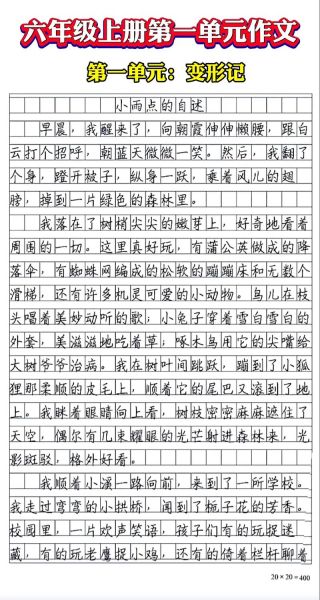 六年级上册第一单元作文
第一单元：变形记
小雨点的自述
早晨，我醒来了，向朝霞伸伸懒腰，跟白
云打个招呼，朝蓝天微微一笑。然后，我翻了
个身，蹬开被子，纵身一跃，乘着风儿的翅
膀，掉到一片绿色的森林里。
我落在了树梢尖尖的嫩芽上，好奇地看着
周围的一切。这里真好玩，有蒲公英做成的降
落伞，有蜘蛛网编成的松软的蹦蹦床和无数个
滑梯，还有许多机灵可爱的小动物。鸟儿在枝
头唱着美妙动听的歌；小兔子穿着雪白雪白的
外套，美滋滋地吃着草；啄木鸟用它的尖嘴给
大树爷爷治病。我在树叶间跳跃，蹦到了小狐
狸那柔顺的皮毛上，顺着它的尾巴又滚到了地
上。我眯着眼睛向上看，树枝密密麻麻遮住了
天空，偶尔有几束耀眼的光芒射进森林来，光
影斑驳，格外好看。
我顺着小溪一路向前，来到了一所学校。
我走过弯弯的小拱桥，闻到了栀子花的芳香。
校园里，一片欢声笑语，孩子们有的玩捉迷
藏，有的玩老鹰捉小鸡，还有的倚着栏杆聊着
20×20=400